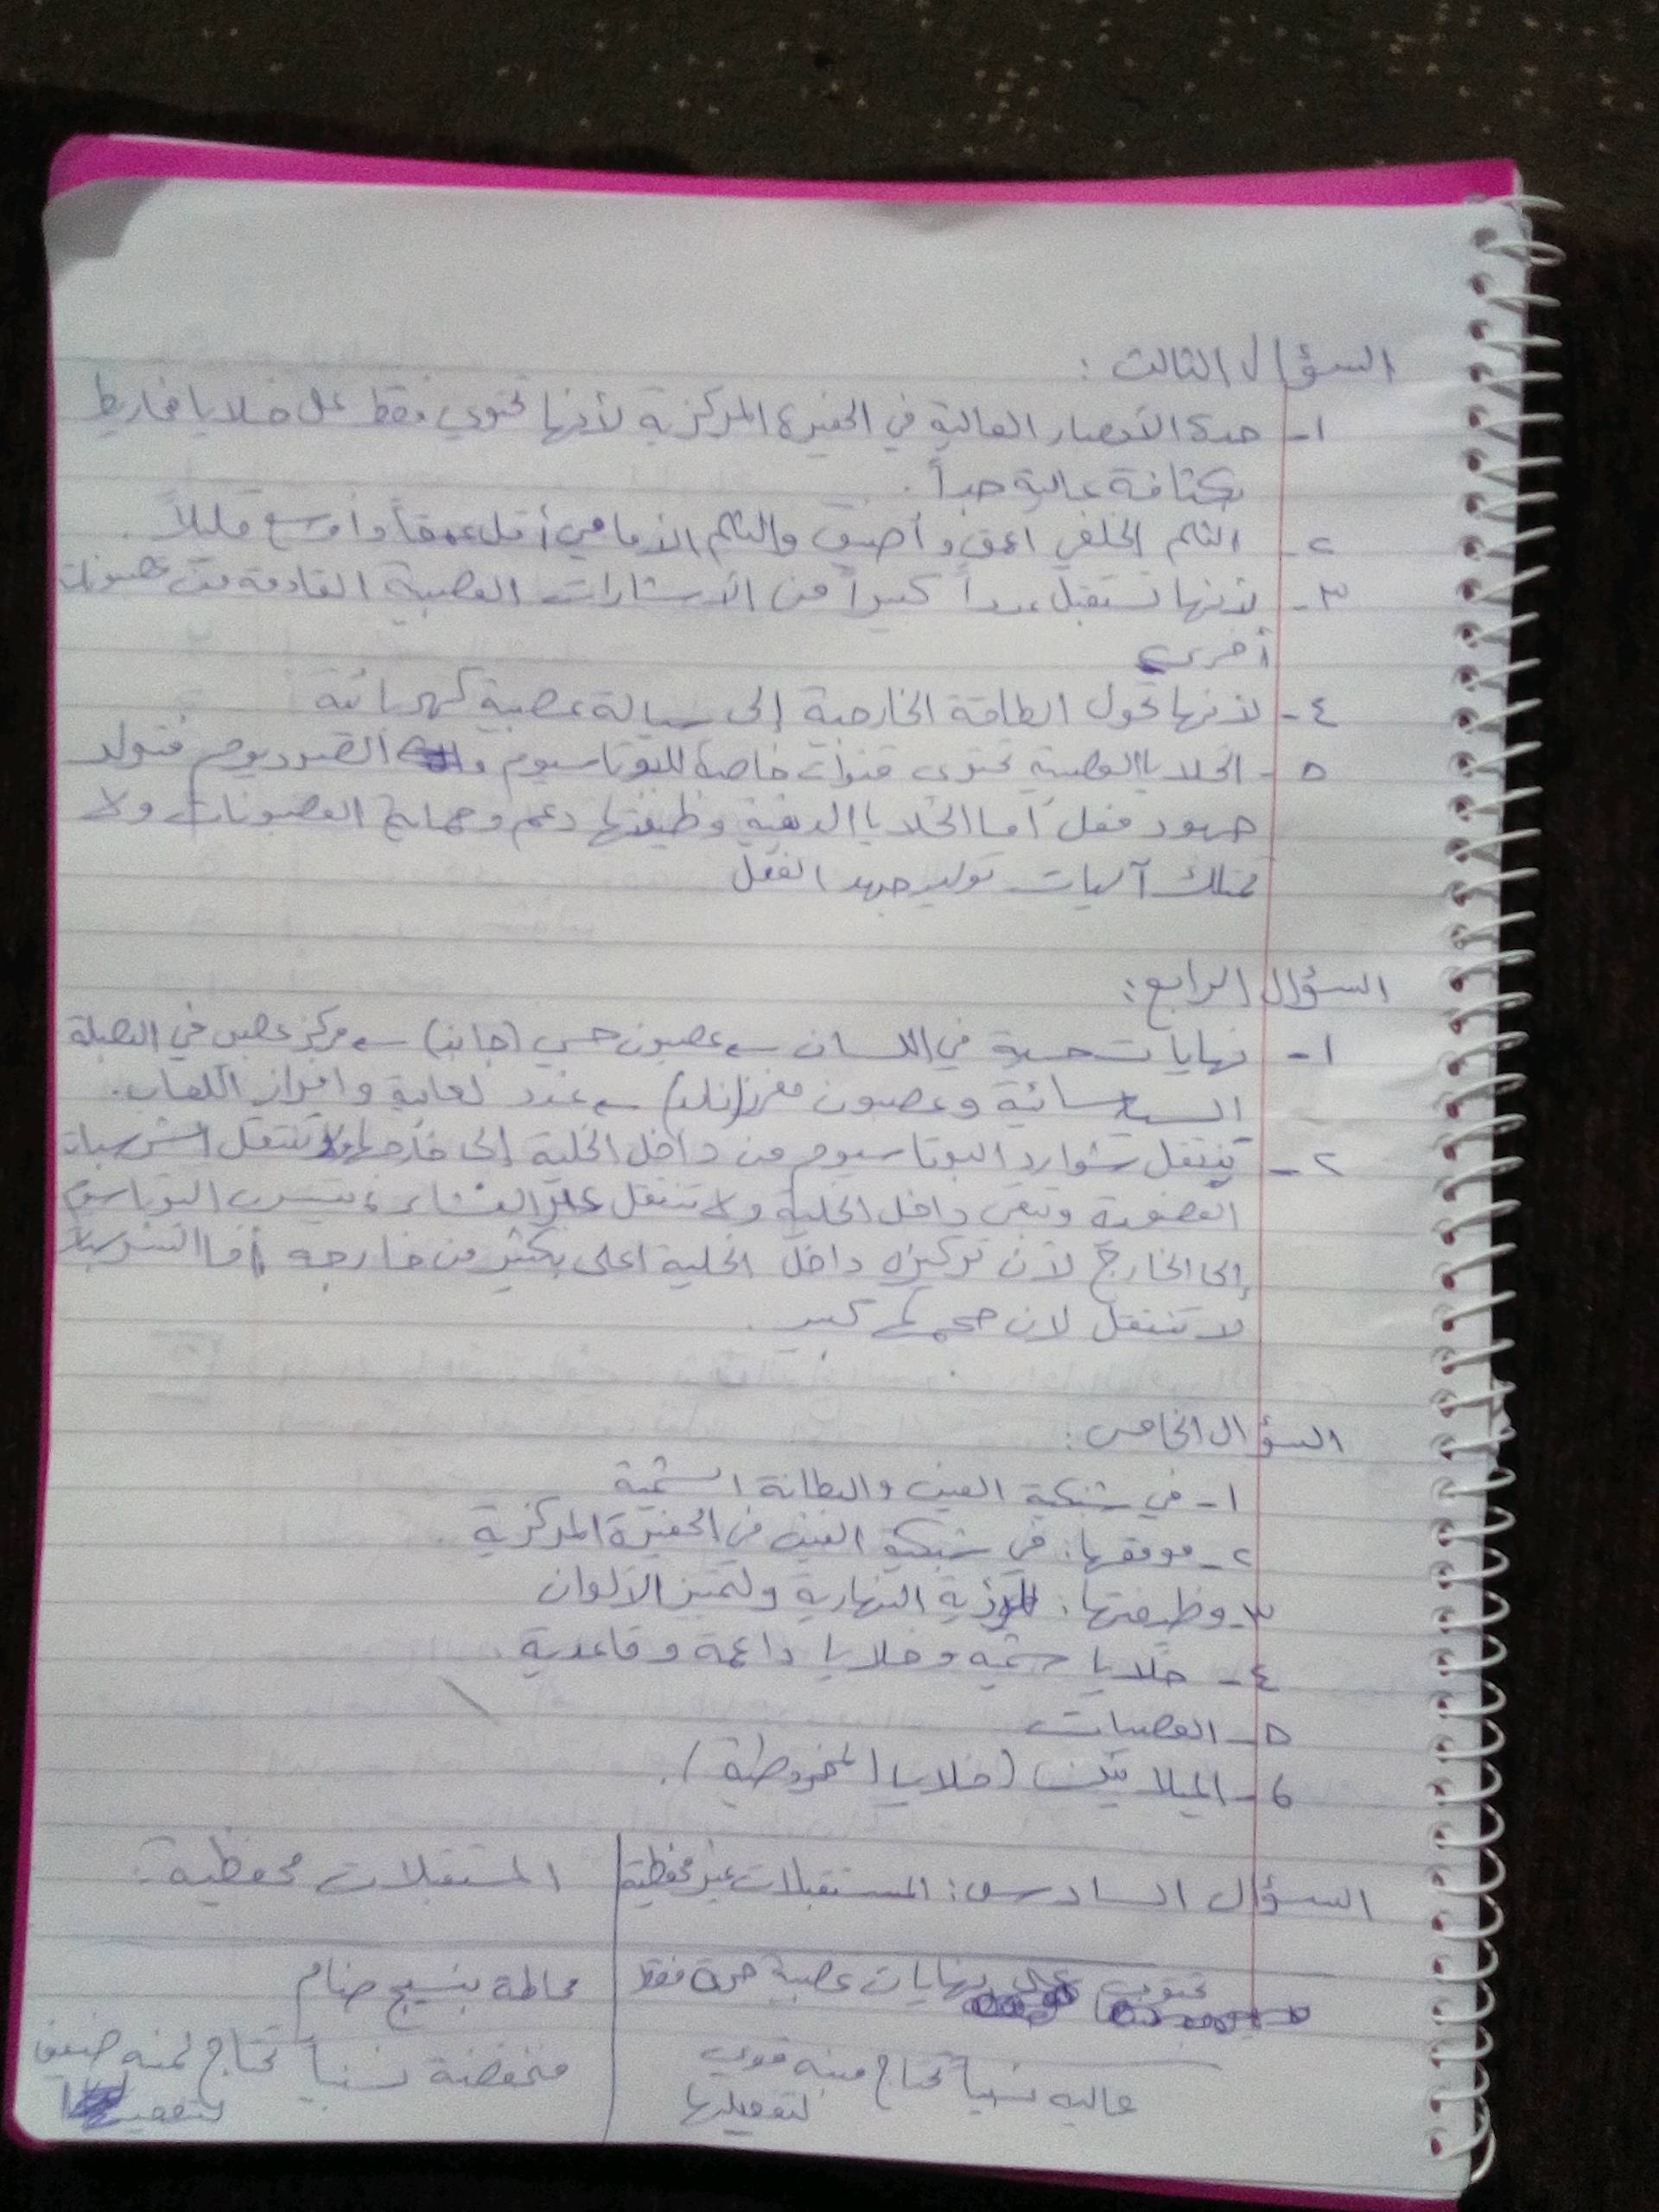 السؤال الثالث :
١- حدة الأبصار العالية في الحفيرة المركزية لأنها تحتوي فقط على خلايا مخاريط
بكثافة عالية جداً .
٢- الثلم الخلفي اعمق وأضيق والثلم الأمامي أقل عمقاً وأوسع قليلاً .
٣- لأنها تستقبل عدداً كبيراً من الأشارات العصبية القادمة من عصبونات
أخرى
٤- لأنها تحول الطاقة الخارجية إلى سيالة عصبية كهربائية
٥- الخلايا العصبية تحتوي قنوات خاصة للبوتاسيوم و الصوديوم فتولد
جهود فعل أما الخلايا الدبقية وظيفتها دعم وحماية العصبونات ولا
تمتلك آليات توليد جهد الفعل
السؤال الرابع :
١- نهايات حسية في اللسان ← عصبون حسي (جابذ) ← مركز عصبي في البصلة
السيسائية وعصبون مفرز (نابذ) ← غدد لعابية وافراز اللعاب .
٢- تنتقل شوارد البوتاسيوم من داخل الخلية إلى خارجها ولا تنتقل الشرسبات
العضوية وتبقى داخل الخلية ولا تنتقل عبر الغشاء ، يتسرب البوتاسيوم
إلى الخارج لأن تركيزه داخل الخلية اعلى بكثير من خارجه أما الشرسبات
لا تنتقل لان حجمها كبير .
السؤال الخامس :
١- في شبكية العين والبطانة الشمية
٢- موقعها : في شبكية العين في الحفيرة المركزية .
٣- وظيفتها : للرؤية النهارية ولتميز الألوان
٤- خلايا شمية وخلايا داعمة وقاعدية .
٥- العصيات
٦- الميلانين (خلايا المخروطية ) .
السؤال السادس : المستقبلات غير محفظية | المستقبلات محفظية :
تحتوي على نهايات عصبية حرة فقط | محاطة بنسيج ضام
عالية نسبياً تحتاج منبه قوي | منخفضة نسبياً تحتاج لمنبه ضعيف
لتفعيلها | لتفعيلها